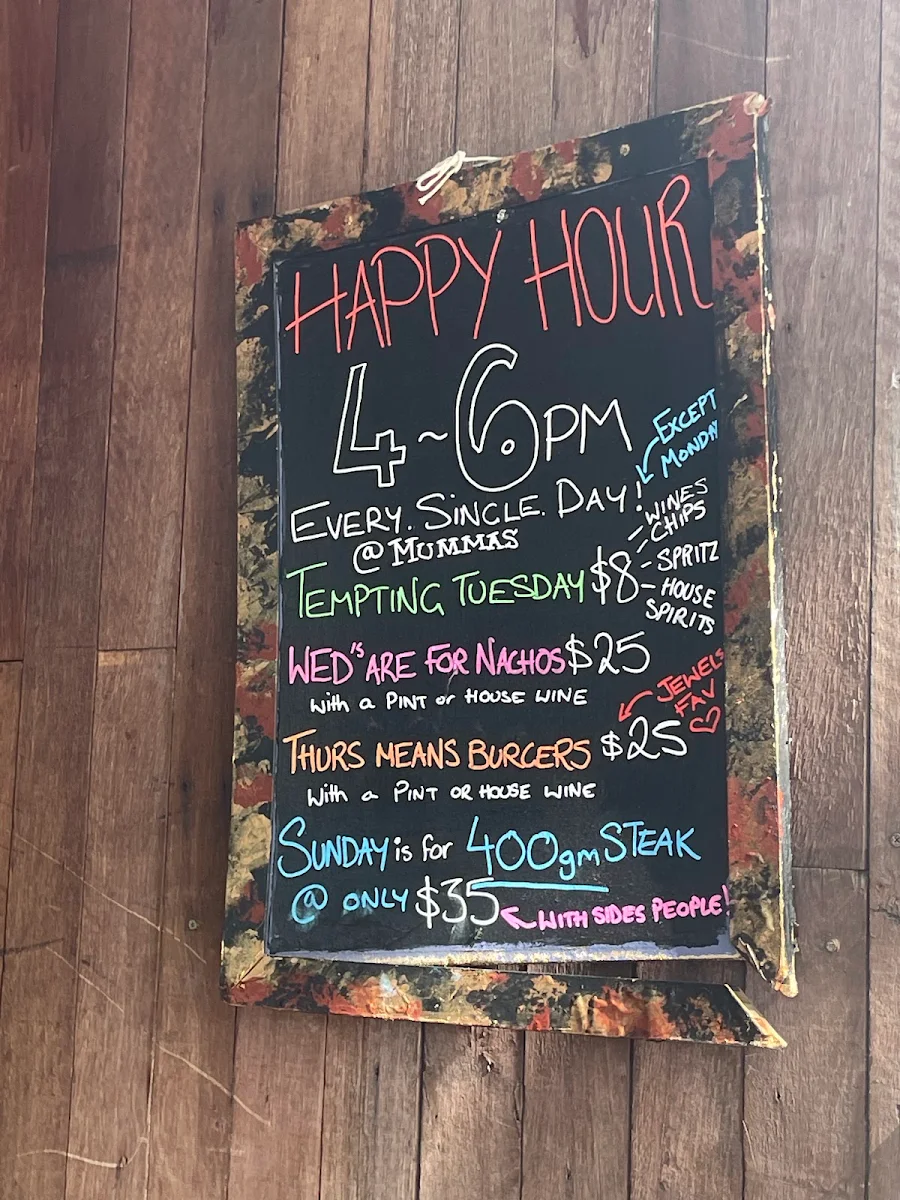 HAPPY HOUR
4~6PM
EXCEPT
MONDAY
EVERY. SINGLE. DAY!
@ MUMMAS
TEMPTING TUESDAY $8
- WINES
- CHIPS
- SPRITZ
- HOUSE
SPIRITS
WED"s ARE FOR NACHOS $25
with a PINT or HOUSE WINE
JEWELS
FAV ♡
THURS MEANS BURGERS $25
with a PINT OR HOUSE WINE
SUNDAY is for 400gm STEAK
@ ONLY $35
WITH SIDES PEOPLE!